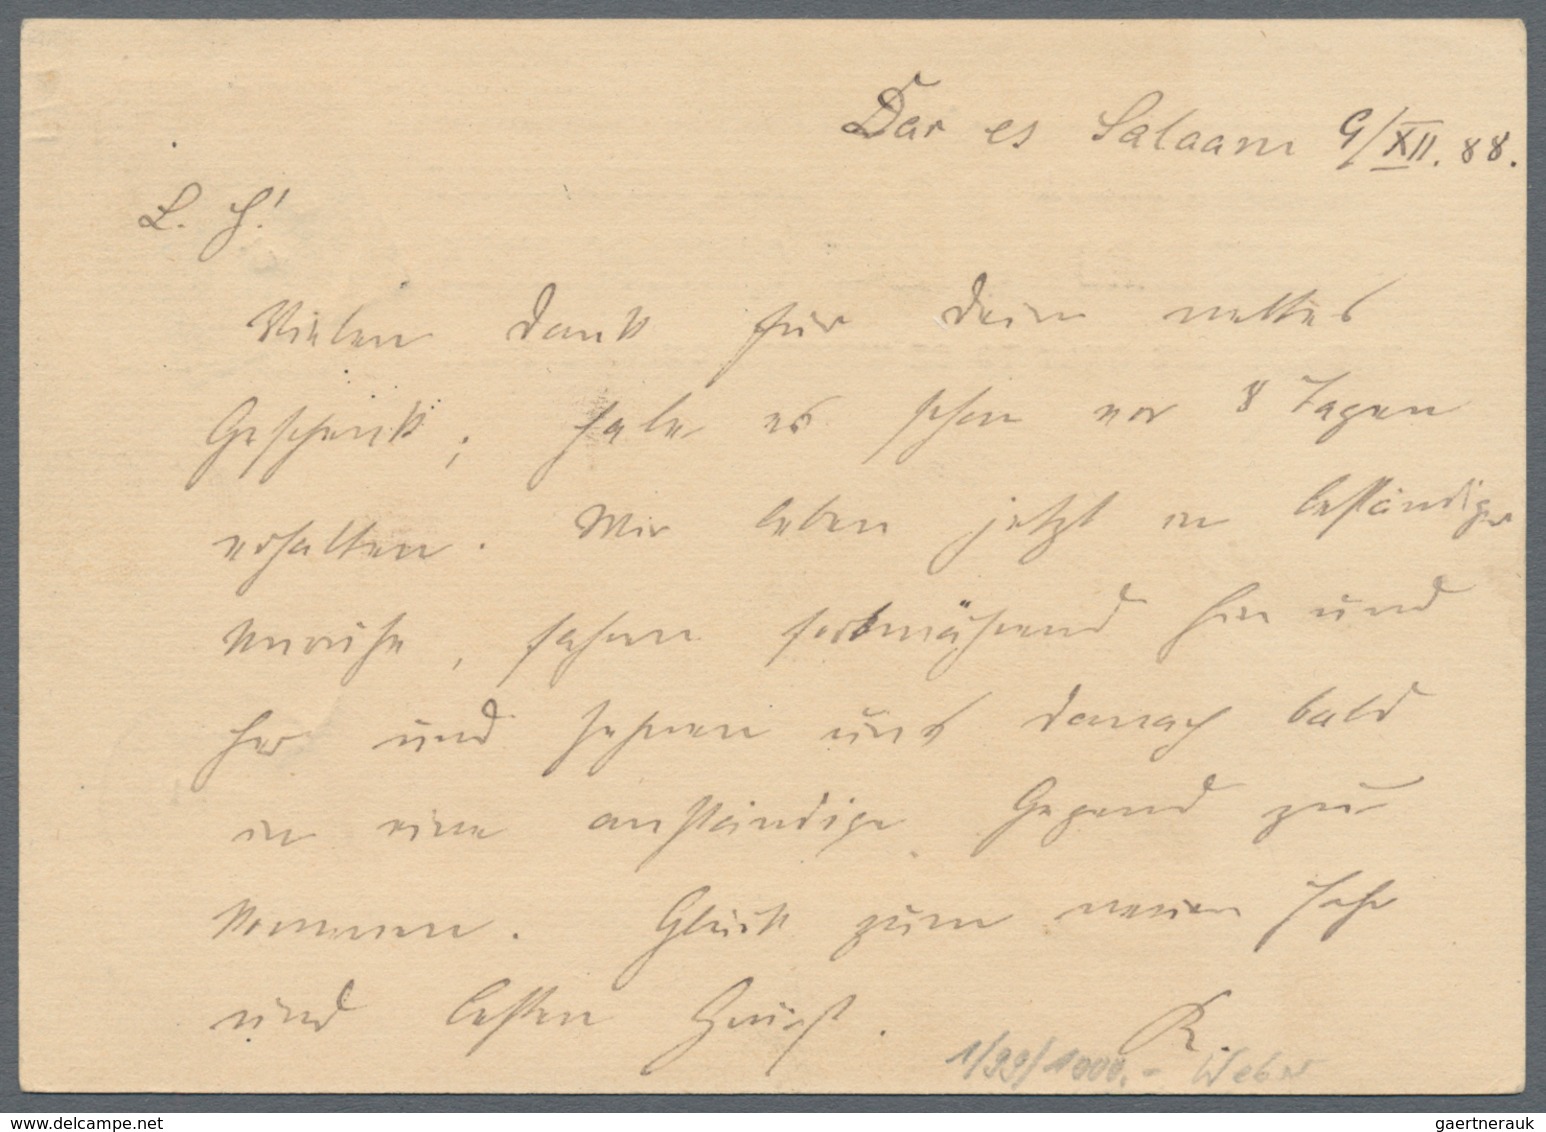 Dar es Salaam 9/XII. 88.
L. H!
Vielen Dank für Dein nettes
Geschenk; habe es schon vor 8 Tagen
erhalten. Wir leben jetzt in beständiger
Unruhe, fahren fortwährend hin und
her und sehnen uns danach bald
in eine anständige Gegend zu
kommen. Glück zum neuen Jahr
und besten Gruß.
R.
1/99/1000.- Weber
www.delcampe.net
gaertnerauk